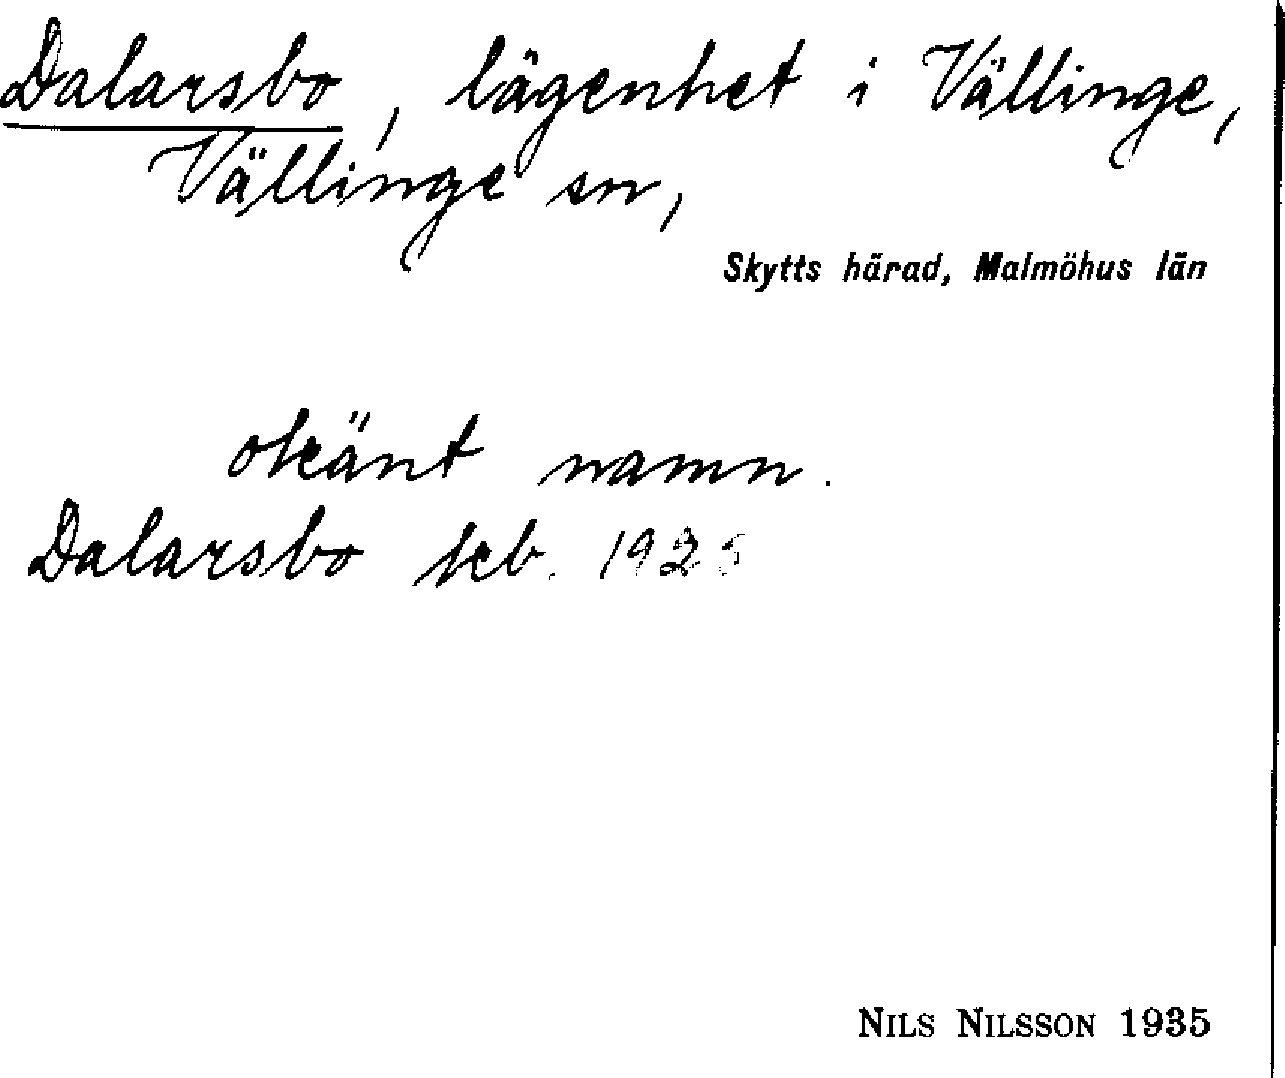 Dalarsbo, lägenhet i Vällinge,
Vällinge sn,
Skytts härad, Malmöhus län
okänt namn.
Dalarsbo skb. 1925
NILS NILSSON 1935